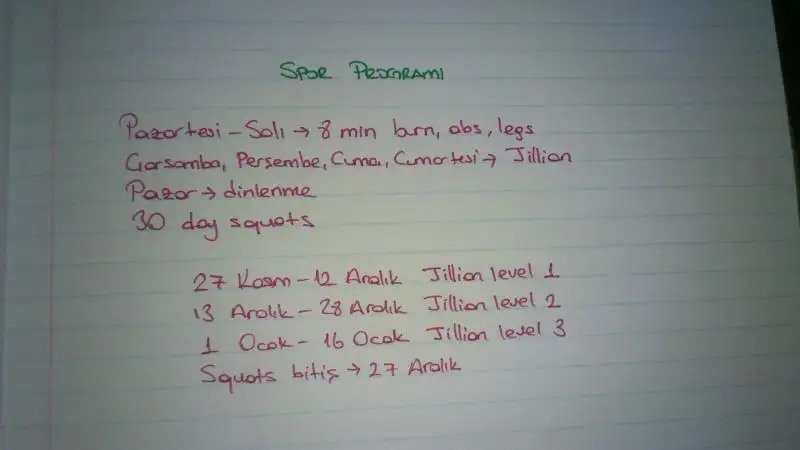 SPOR PROGRAMI
Pazartesi - Salı → 8 min burn, abs, legs
Çarşamba, Perşembe, Cuma, Cumartesi → Jillian
Pazar → dinlenme
30 day squats
27 Kasım - 12 Aralık Jillian level 1
13 Aralık - 28 Aralık Jillian level 2
1 Ocak - 16 Ocak Jillian level 3
Squats bitiş → 27 Aralık